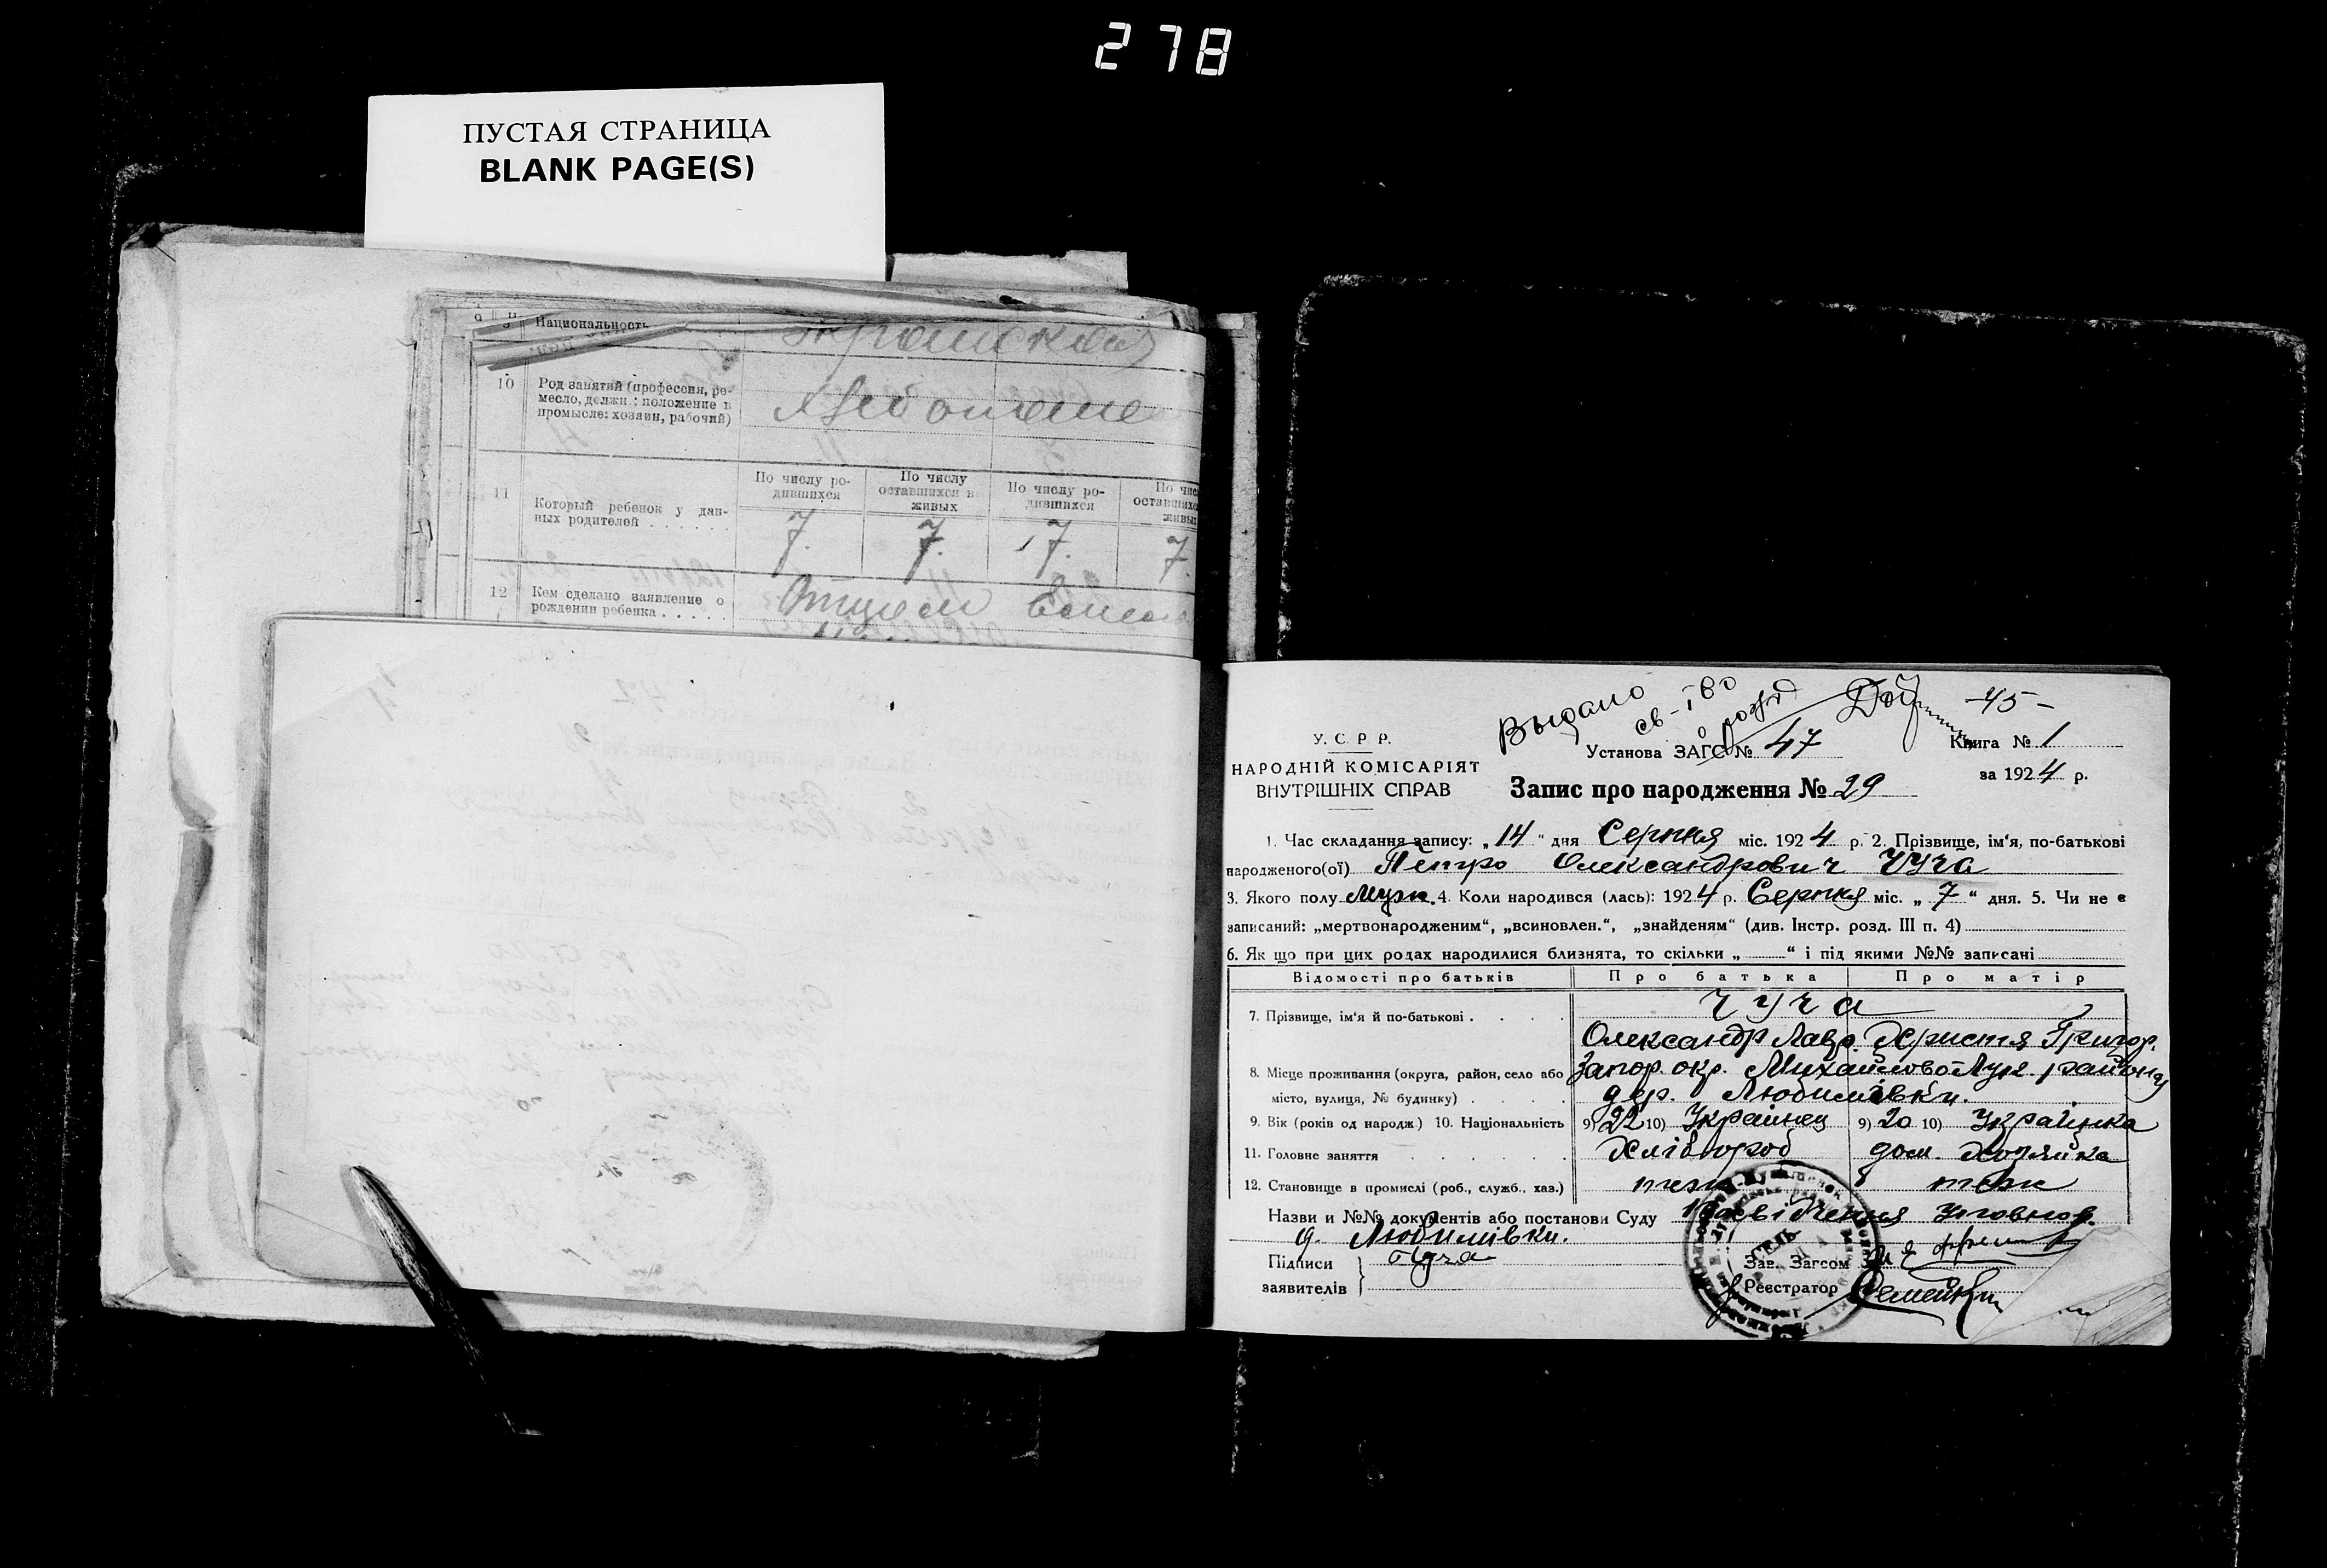 278
ПУСТАЯ СТРАНИЦА
BLANK PAGE(S)
9 Национальность
10 Род занятий (профессия, ре-
месло, должн.: положение в
промысле: хозяин, рабочий)
11 Который ребенок у дан-
ных родителей
По числу ро-
дившихся
По числу
оставшихся в
живых
По числу ро-
дившихся
По чис
оставшихс
живы
7. 7. 7. 7.
12 Кем сделано заявление о
рождении ребенка
Отцом
Выдано
св-тво
о рожд
-45-
У. С. Р. Р.
НАРОДНІЙ КОМІСАРІЯТ
ВНУТРІШНІХ СПРАВ
Установа ЗАГС № 47
Книга № 1
за 1924 р.
Запис про народження № 29
1. Час складання запису: „14“ дня Серпня міс. 1924 р. 2. Прізвище, ім‘я, по-батькові
народженого(ої) Петро Олександрович Чуча
3. Якого полу муж. 4. Коли народився (лась): 1924 р. Серпня міс. „7“ дня. 5. Чи не є
записаний: „мертвонародженим“, „всиновлен.“, „знайденям“ (див. Інстр. розд. III п. 4)
6. Як що при цих родах народилися близнята, то скільки „ “ і під якими №№ записані
Відомості про батьків Про батька Про матір
7. Прізвище, ім‘я й по-батькові Чуча
Олександр Лавр. Христя Григор.
8. Місце проживання (округа, район, село або Запор. окр. Михайлово Лук. району
місто, вулиця, № будинку) дер. Любимівки.
9. Вік (років од народж) 10. Національність 9) 22 10) Українец 9) 20 10) Українка
11. Головне заняття Хлібороб дом. Хозяйка
12. Становище в промислі (роб., служб., хаз.) теж теж
Назви и №№ документів або постанови Суду Посвідчення Уповнов.
д. Любимівки.
Підписи
заявителів
Чуча
Зав. Загсом
Реєстратор